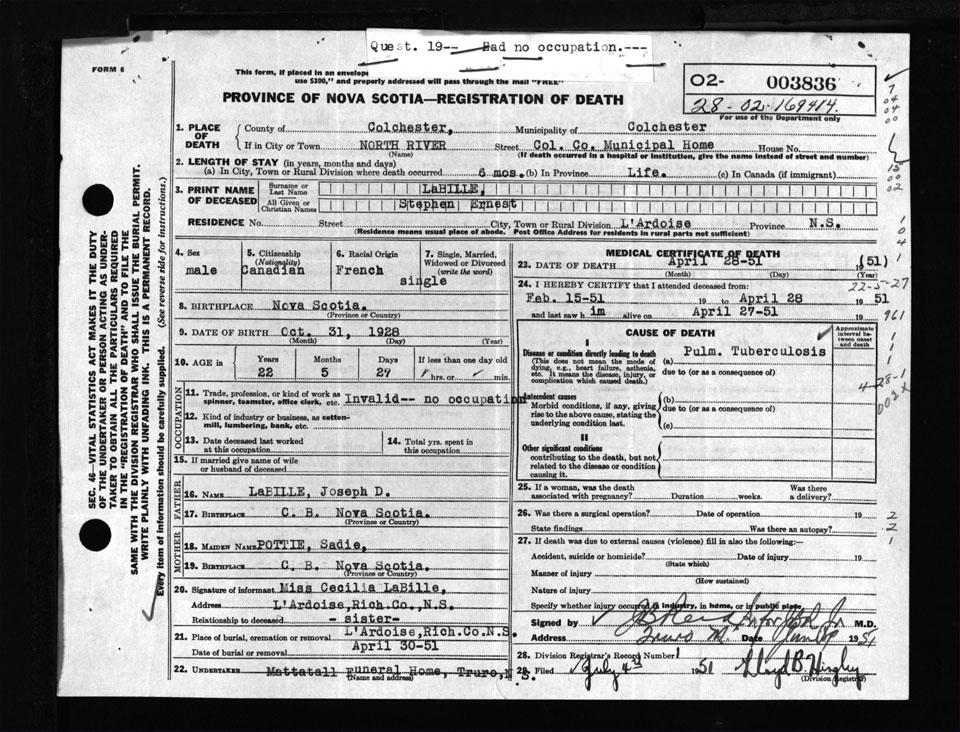 Quest. 19-- Had no occupation.---
FORM 6
This form, if placed in an envelope
use $300," and properly addressed will pass through the mail "FREE"
PROVINCE OF NOVA SCOTIA—REGISTRATION OF DEATH
O2- 003836
28-02-169414.
For use of the Department only
1. PLACE OF DEATH
County of Colchester, Municipality of Colchester
If in City or Town NORTH RIVER Street Col. Co. Municipal Home House No.
(Name) (If death occurred in a hospital or institution, give the name instead of street and number)
2. LENGTH OF STAY (in years, months and days)
(a) In City, Town or Rural Division where death occurred 6 mos. (b) In Province Life. (c) In Canada (if immigrant)
3. PRINT NAME OF DECEASED
Surname or Last Name LaBILLE,
All Given or Christian Names Stephen Ernest
RESIDENCE No. Street City, Town or Rural Division L'Ardoise Province N.S.
(Residence means usual place of abode. Post Office Address for residents in rural parts not sufficient)
4. Sex male
5. Citizenship (Nationality) Canadian
6. Racial Origin French
7. Single, Married, Widowed or Divorced (write the word) single
8. BIRTHPLACE Nova Scotia.
(Province or Country)
9. DATE OF BIRTH Oct. 31, 1928
(Month) (Day) (Year)
10. AGE in Years Months Days If less than one day old
22 5 27 hrs. or min.
OCCUPATION
11. Trade, profession, or kind of work as spinner, teamster, office clerk, etc. Invalid-- no occupation
12. Kind of industry or business, as cotton-mill, lumbering, bank, etc.
13. Date deceased last worked at this occupation
14. Total yrs. spent in this occupation
15. If married give name of wife or husband of deceased
FATHER
16. NAME LaBILLE, Joseph D.
17. BIRTHPLACE C. B. Nova Scotia.
(Province or Country)
MOTHER
18. MAIDEN NAME POTTIE, Sadie,
19. BIRTHPLACE C. B. Nova Scotia.
(Province or Country)
20. Signature of informant Miss Cecilia LaBille
Address L'Ardoise,Rich.Co.,N.S.
Relationship to deceased - sister-
21. Place of burial, cremation or removal L'Ardoise,Rich.Co.N.S.
Date of burial or removal April 30-51
22. UNDERTAKER Mattatall Funeral Home, Truro,N.S.
(Name and address)
MEDICAL CERTIFICATE OF DEATH
23. DATE OF DEATH April 28-51 19(51)
(Month) (Day) (Year)
24. I HEREBY CERTIFY that I attended deceased from:
22-5-27
Feb. 15-51 19 to April 28 1951
and last saw him alive on April 27-51 19
961
CAUSE OF DEATH
Approximate interval between onset and death
I
Disease or condition directly leading to death
(This does not mean the mode of dying, e.g., heart failure, asthenia, etc. It means the disease, injury, or complication which caused death.)
(a) Pulm. Tuberculosis
due to (or as a consequence of)
Antecedent causes
Morbid conditions, if any, giving rise to the above cause, stating the underlying condition last.
(b)
due to (or as a consequence of)
(c)
II
Other significant conditions
contributing to the death, but not related to the disease or condition causing it.
4-28-1
002X
25. If a woman, was the death associated with pregnancy? Duration weeks. Was there a delivery?
26. Was there a surgical operation? Date of operation 19
State findings Was there an autopsy?
27. If death was due to external causes (violence) fill in also the following:—
Accident, suicide or homicide? Date of injury 19
(State which)
Manner of injury
(How sustained)
Nature of injury
Specify whether injury occurred in industry, in home, or in public place
Signed by M.D.
Address Truro Date 1951
28. Division Registrar's Record Number 1
29. Filed July 4th 1951 Lloyd B. Hingley
(Division Registrar)
SEC. 46—VITAL STATISTICS ACT MAKES IT THE DUTY
OF THE UNDERTAKER OR PERSON ACTING AS UNDER-
TAKER TO OBTAIN ALL THE PARTICULARS REQUIRED
IN THE "REGISTRATION OF DEATH" AND TO FILE THE
SAME WITH THE DIVISION REGISTRAR WHO SHALL ISSUE THE BURIAL PERMIT.
WRITE PLAINLY WITH UNFADING INK. THIS IS A PERMANENT RECORD.
Every item of information should be carefully supplied. (See reverse side for instructions.)